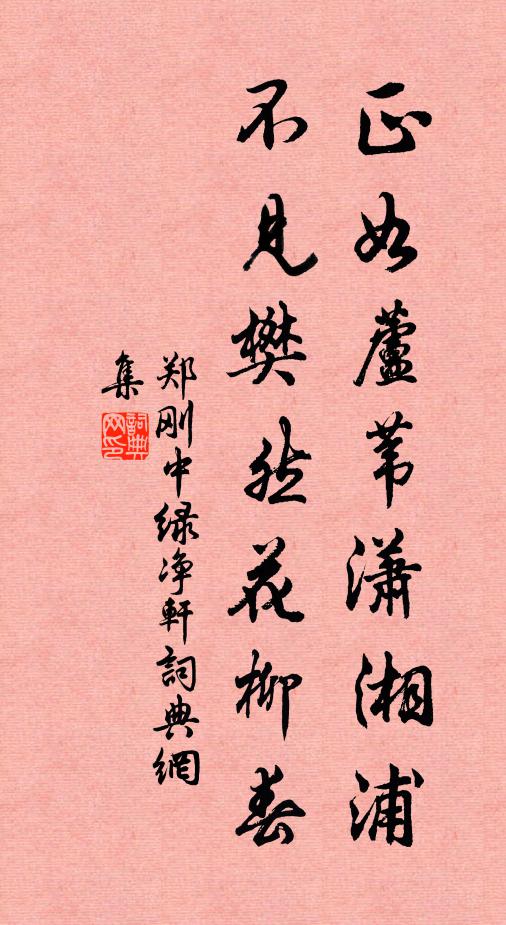 正如蘆葦瀟湘浦
不見樊然花柳春
郑刚中绿净軒詞典網
集
詞典網印